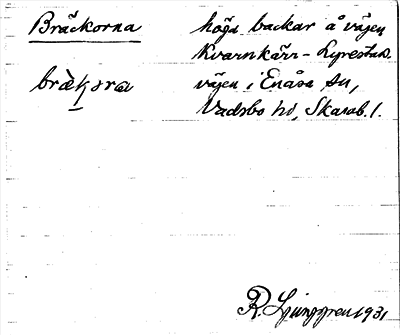 Bräckorna
höga backar å vägen
Kvarnkärr - Lyrestad.
vägen i Enåsa sn,
Vadsbo hd, Skarab. l.
R. Ljunggren 1931